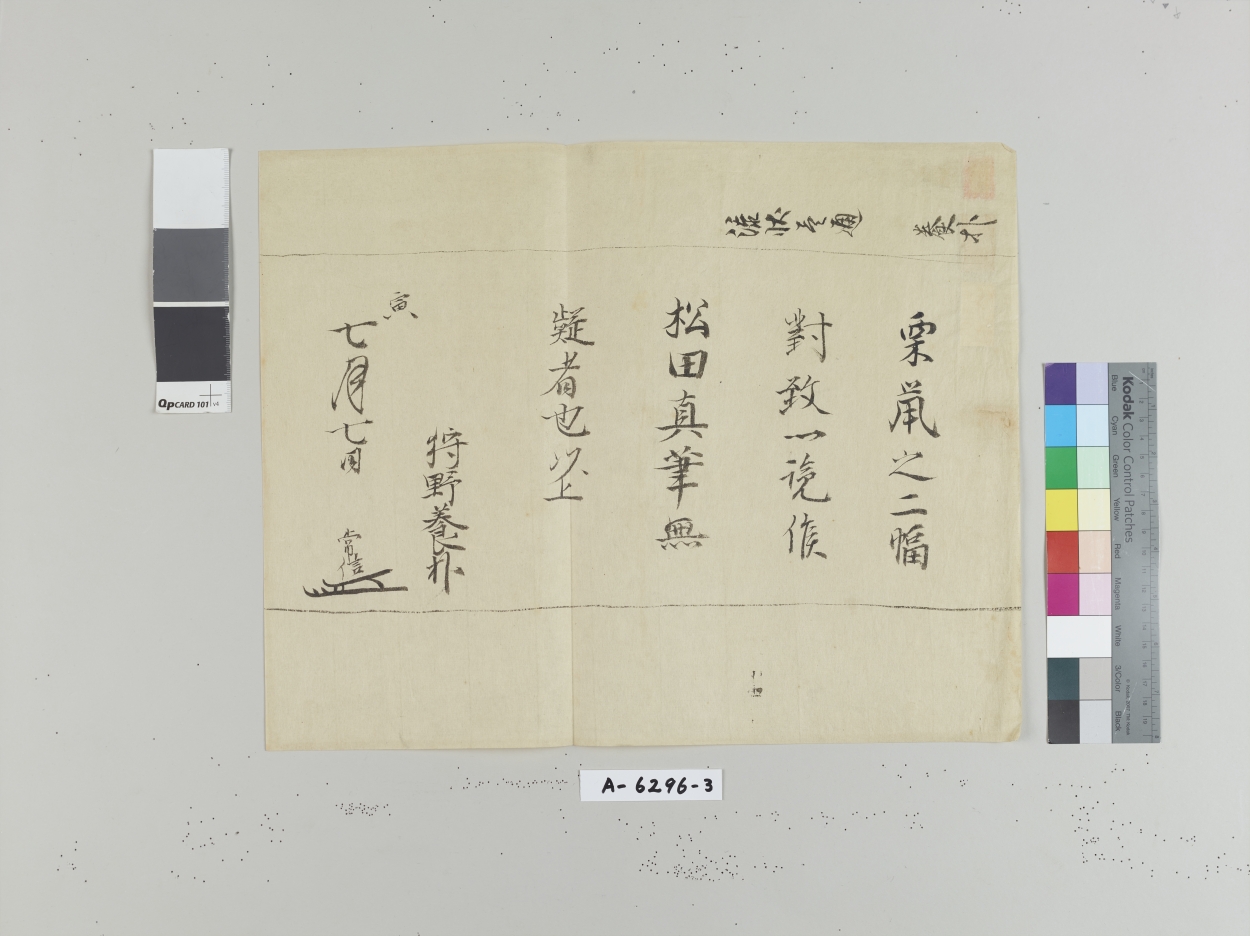 養朴
栗鼠之二幅
對致一覧候
松田真筆無
疑者也以上
狩野養朴
寅
七月七日
常信
A-6296-3
QPCARD 101 v4
Kodak Color Control Patches
Blue
Cyan
Green
Yellow
Red
Magenta
White
3/Color
Black